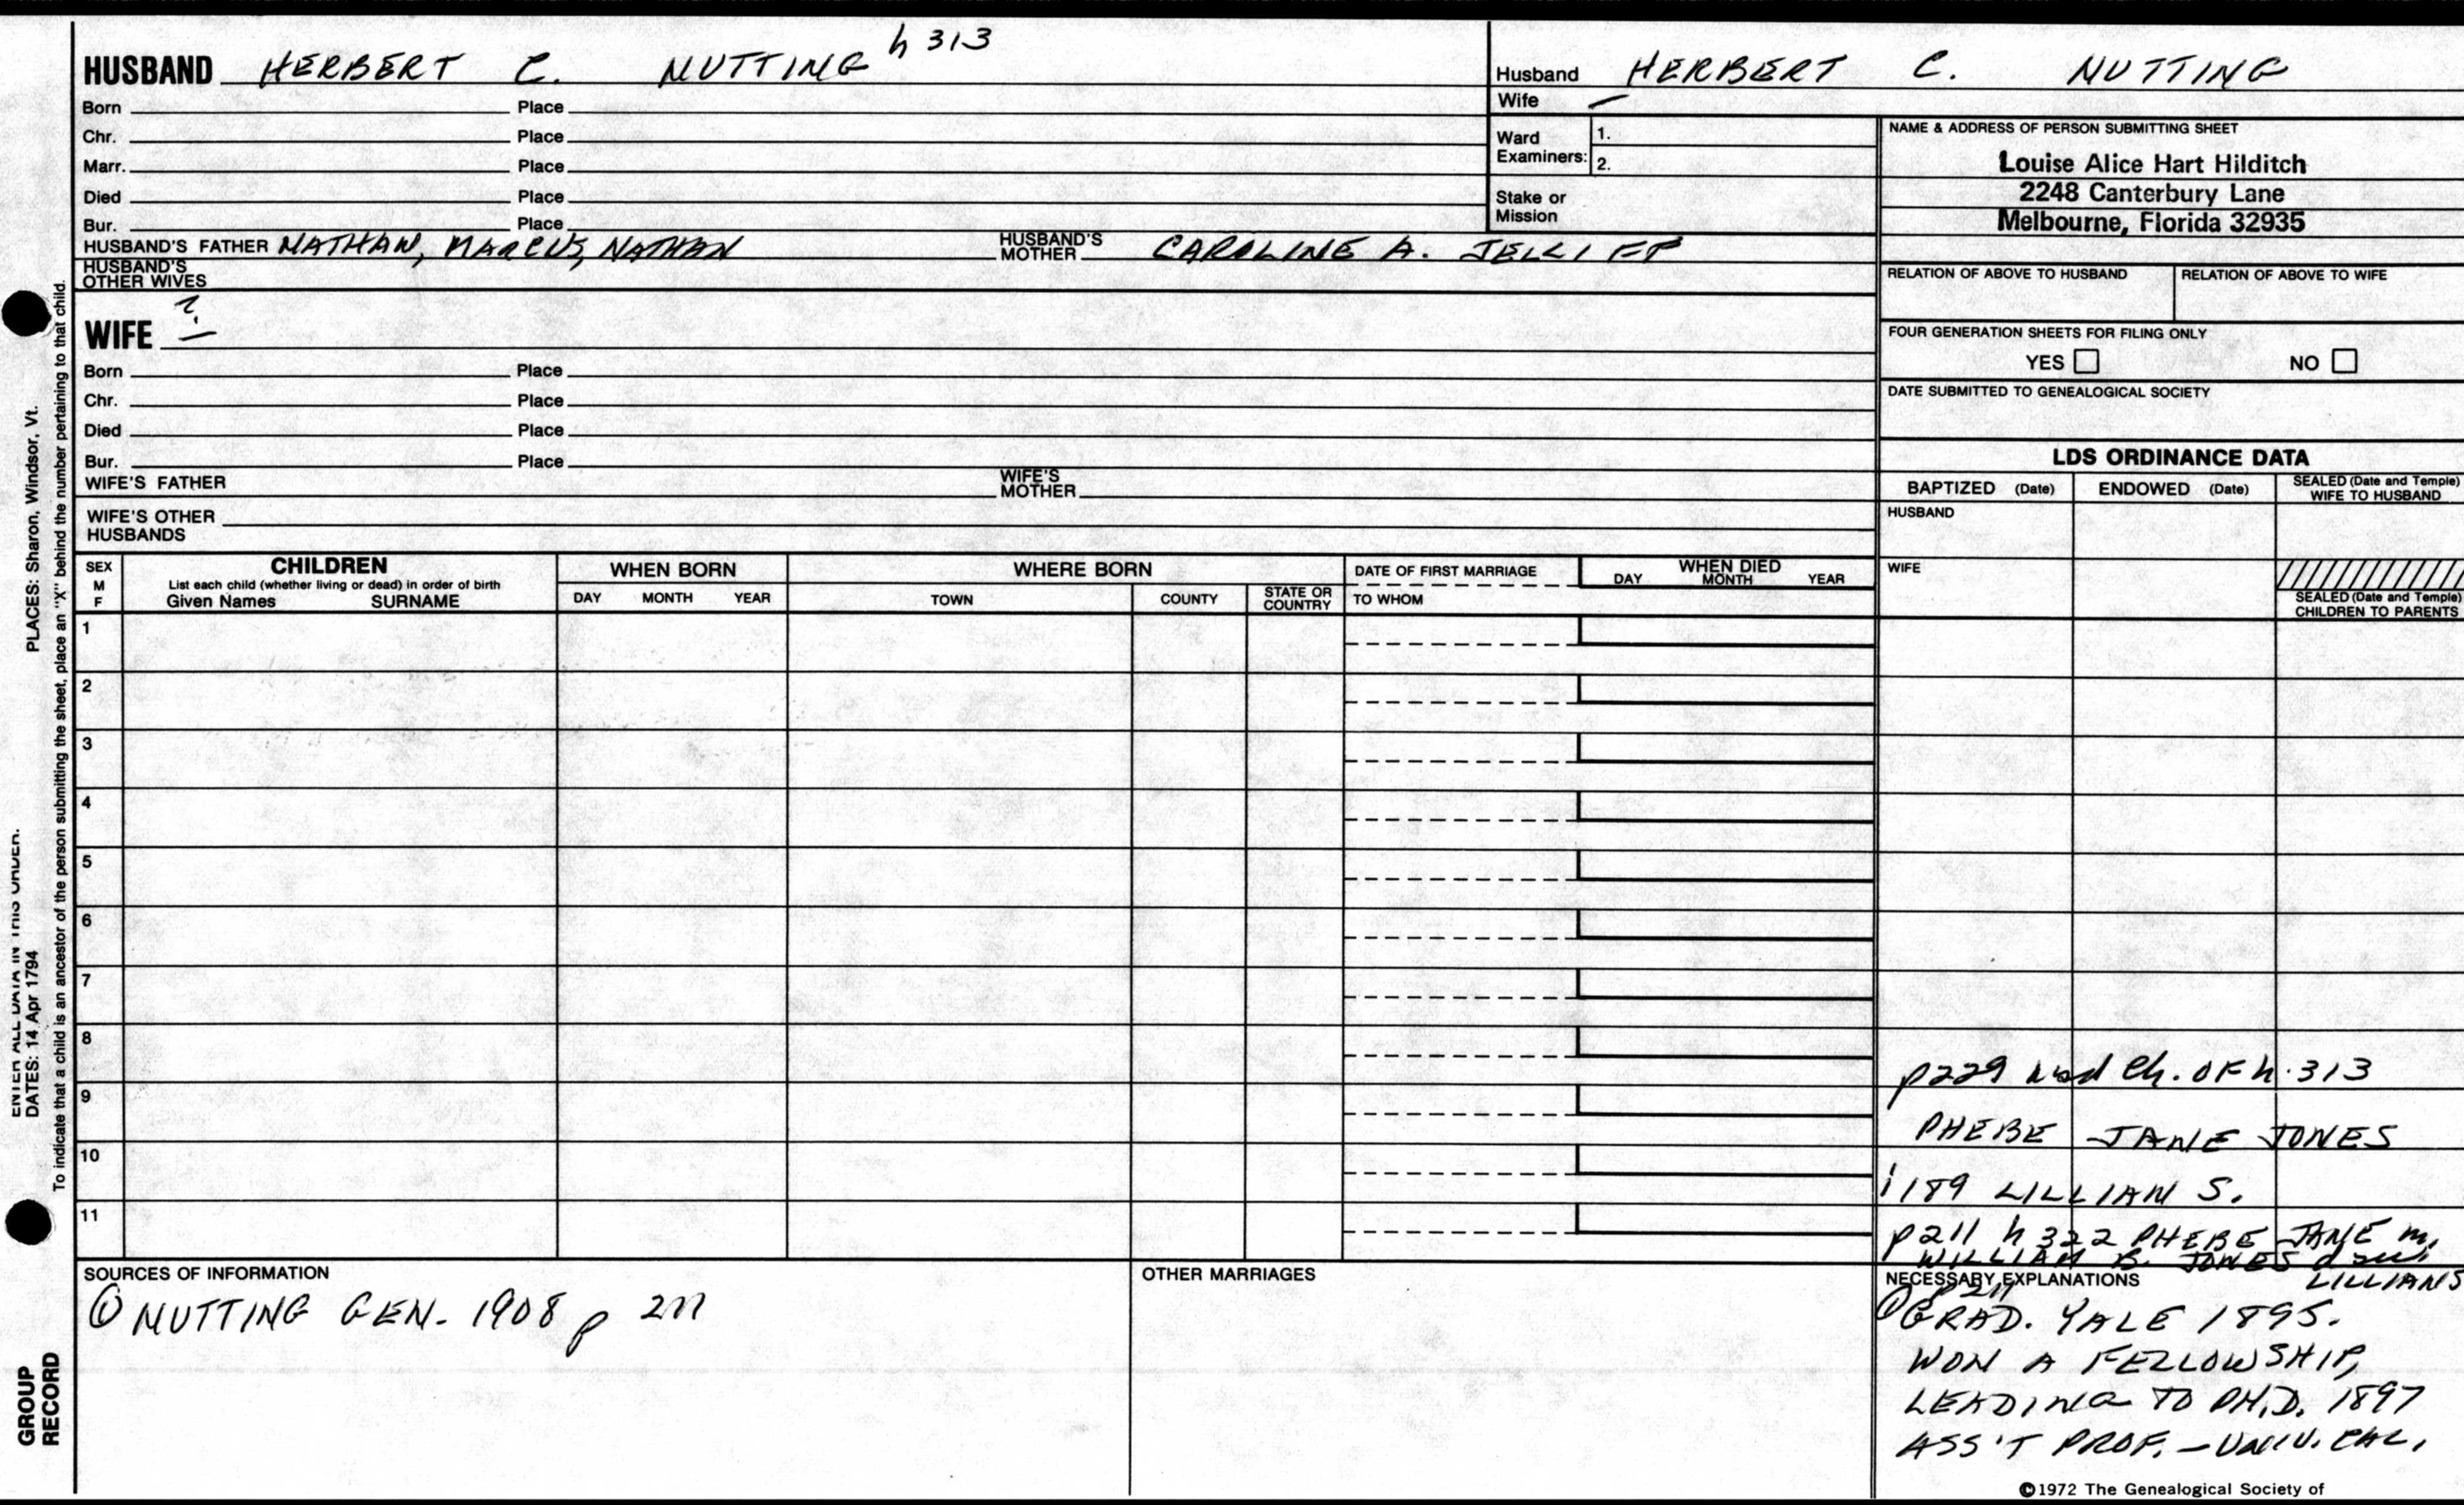 HUSBAND HERBERT C. NUTTING h 313
Born Place
Chr. Place
Marr. Place
Died Place
Bur. Place
HUSBAND'S FATHER NATHAN, MARCUS, NATHAN HUSBAND'S MOTHER CAROLINE A. JELLIFF
HUSBAND'S OTHER WIVES
WIFE ?
Born Place
Chr. Place
Died Place
Bur. Place
WIFE'S FATHER WIFE'S MOTHER
WIFE'S OTHER HUSBANDS
Husband HERBERT C. NUTTING
Wife —
Ward Examiners: 1. 2.
Stake or Mission
NAME & ADDRESS OF PERSON SUBMITTING SHEET
Louise Alice Hart Hilditch
2248 Canterbury Lane
Melbourne, Florida 32935
RELATION OF ABOVE TO HUSBAND RELATION OF ABOVE TO WIFE
FOUR GENERATION SHEETS FOR FILING ONLY
YES NO
DATE SUBMITTED TO GENEALOGICAL SOCIETY
LDS ORDINANCE DATA
BAPTIZED (Date) ENDOWED (Date) SEALED (Date and Temple) WIFE TO HUSBAND
HUSBAND
WIFE
SEALED (Date and Temple) CHILDREN TO PARENTS
SEX M F
CHILDREN
List each child (whether living or dead) in order of birth
Given Names SURNAME
WHEN BORN
DAY MONTH YEAR
WHERE BORN
TOWN COUNTY STATE OR COUNTRY
DATE OF FIRST MARRIAGE
TO WHOM
WHEN DIED
DAY MONTH YEAR
1
2
3
4
5
6
7
8
9
10
11
p229 Ch. OF h. 313
PHEBE JANE JONES
i 189 LILLIAN S.
p 211 h 322 PHEBE JANE m.
WILLIAM B. JONES
LILLIAN S
SOURCES OF INFORMATION
① NUTTING GEN. 1908 p 211
OTHER MARRIAGES
NECESSARY EXPLANATIONS
① p211
GRAD. YALE 1895.
WON A FELLOWSHIP,
LEADING TO PH.D. 1897
ASS'T PROF. – UNIV. CAL.
©1972 The Genealogical Society of
ENTER ALL DATA IN THIS ORDER.
DATES: 14 Apr 1794 PLACES: Sharon, Windsor, Vt.
To indicate that a child is an ancestor of the person submitting the sheet, place an "X" behind the number pertaining to that child.
GROUP
RECORD